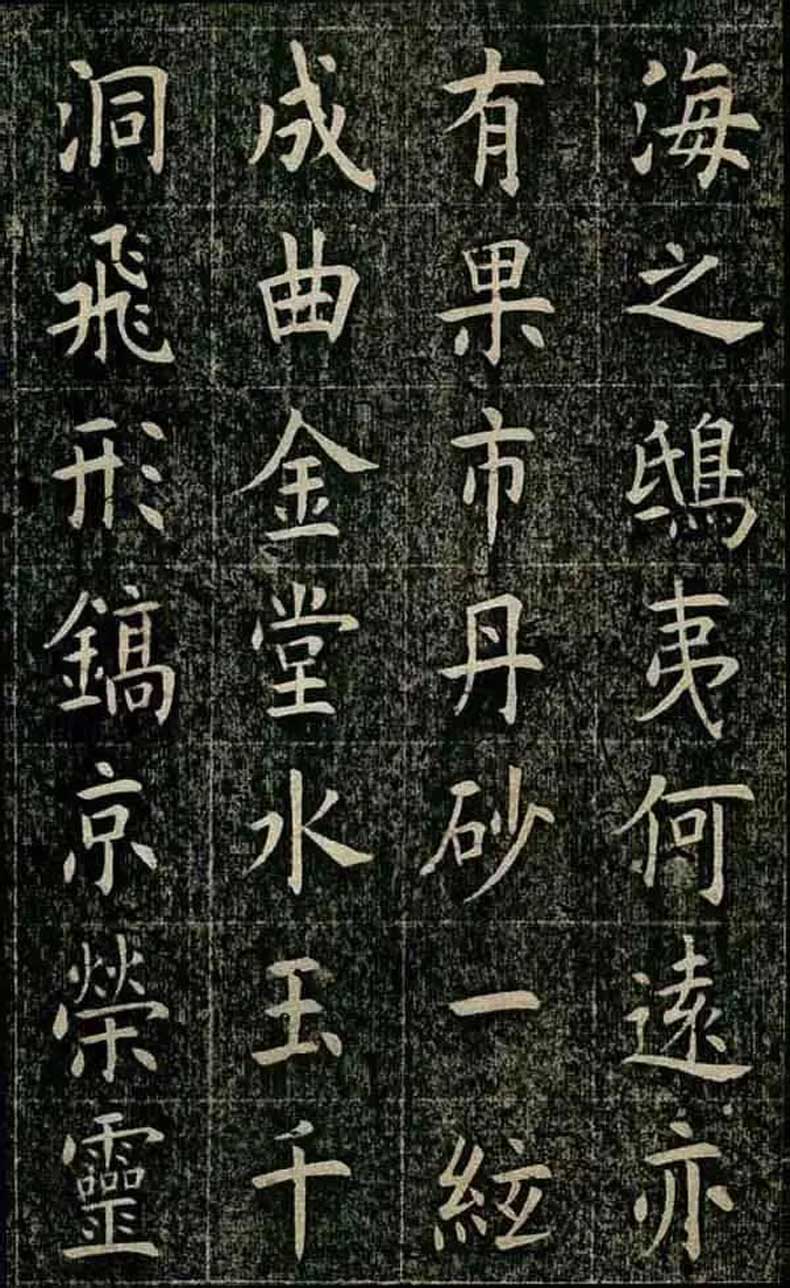 海之鴟夷何遠亦
有果市丹砂一絃
成曲金堂水玉千
洞飛形鎬京榮靈